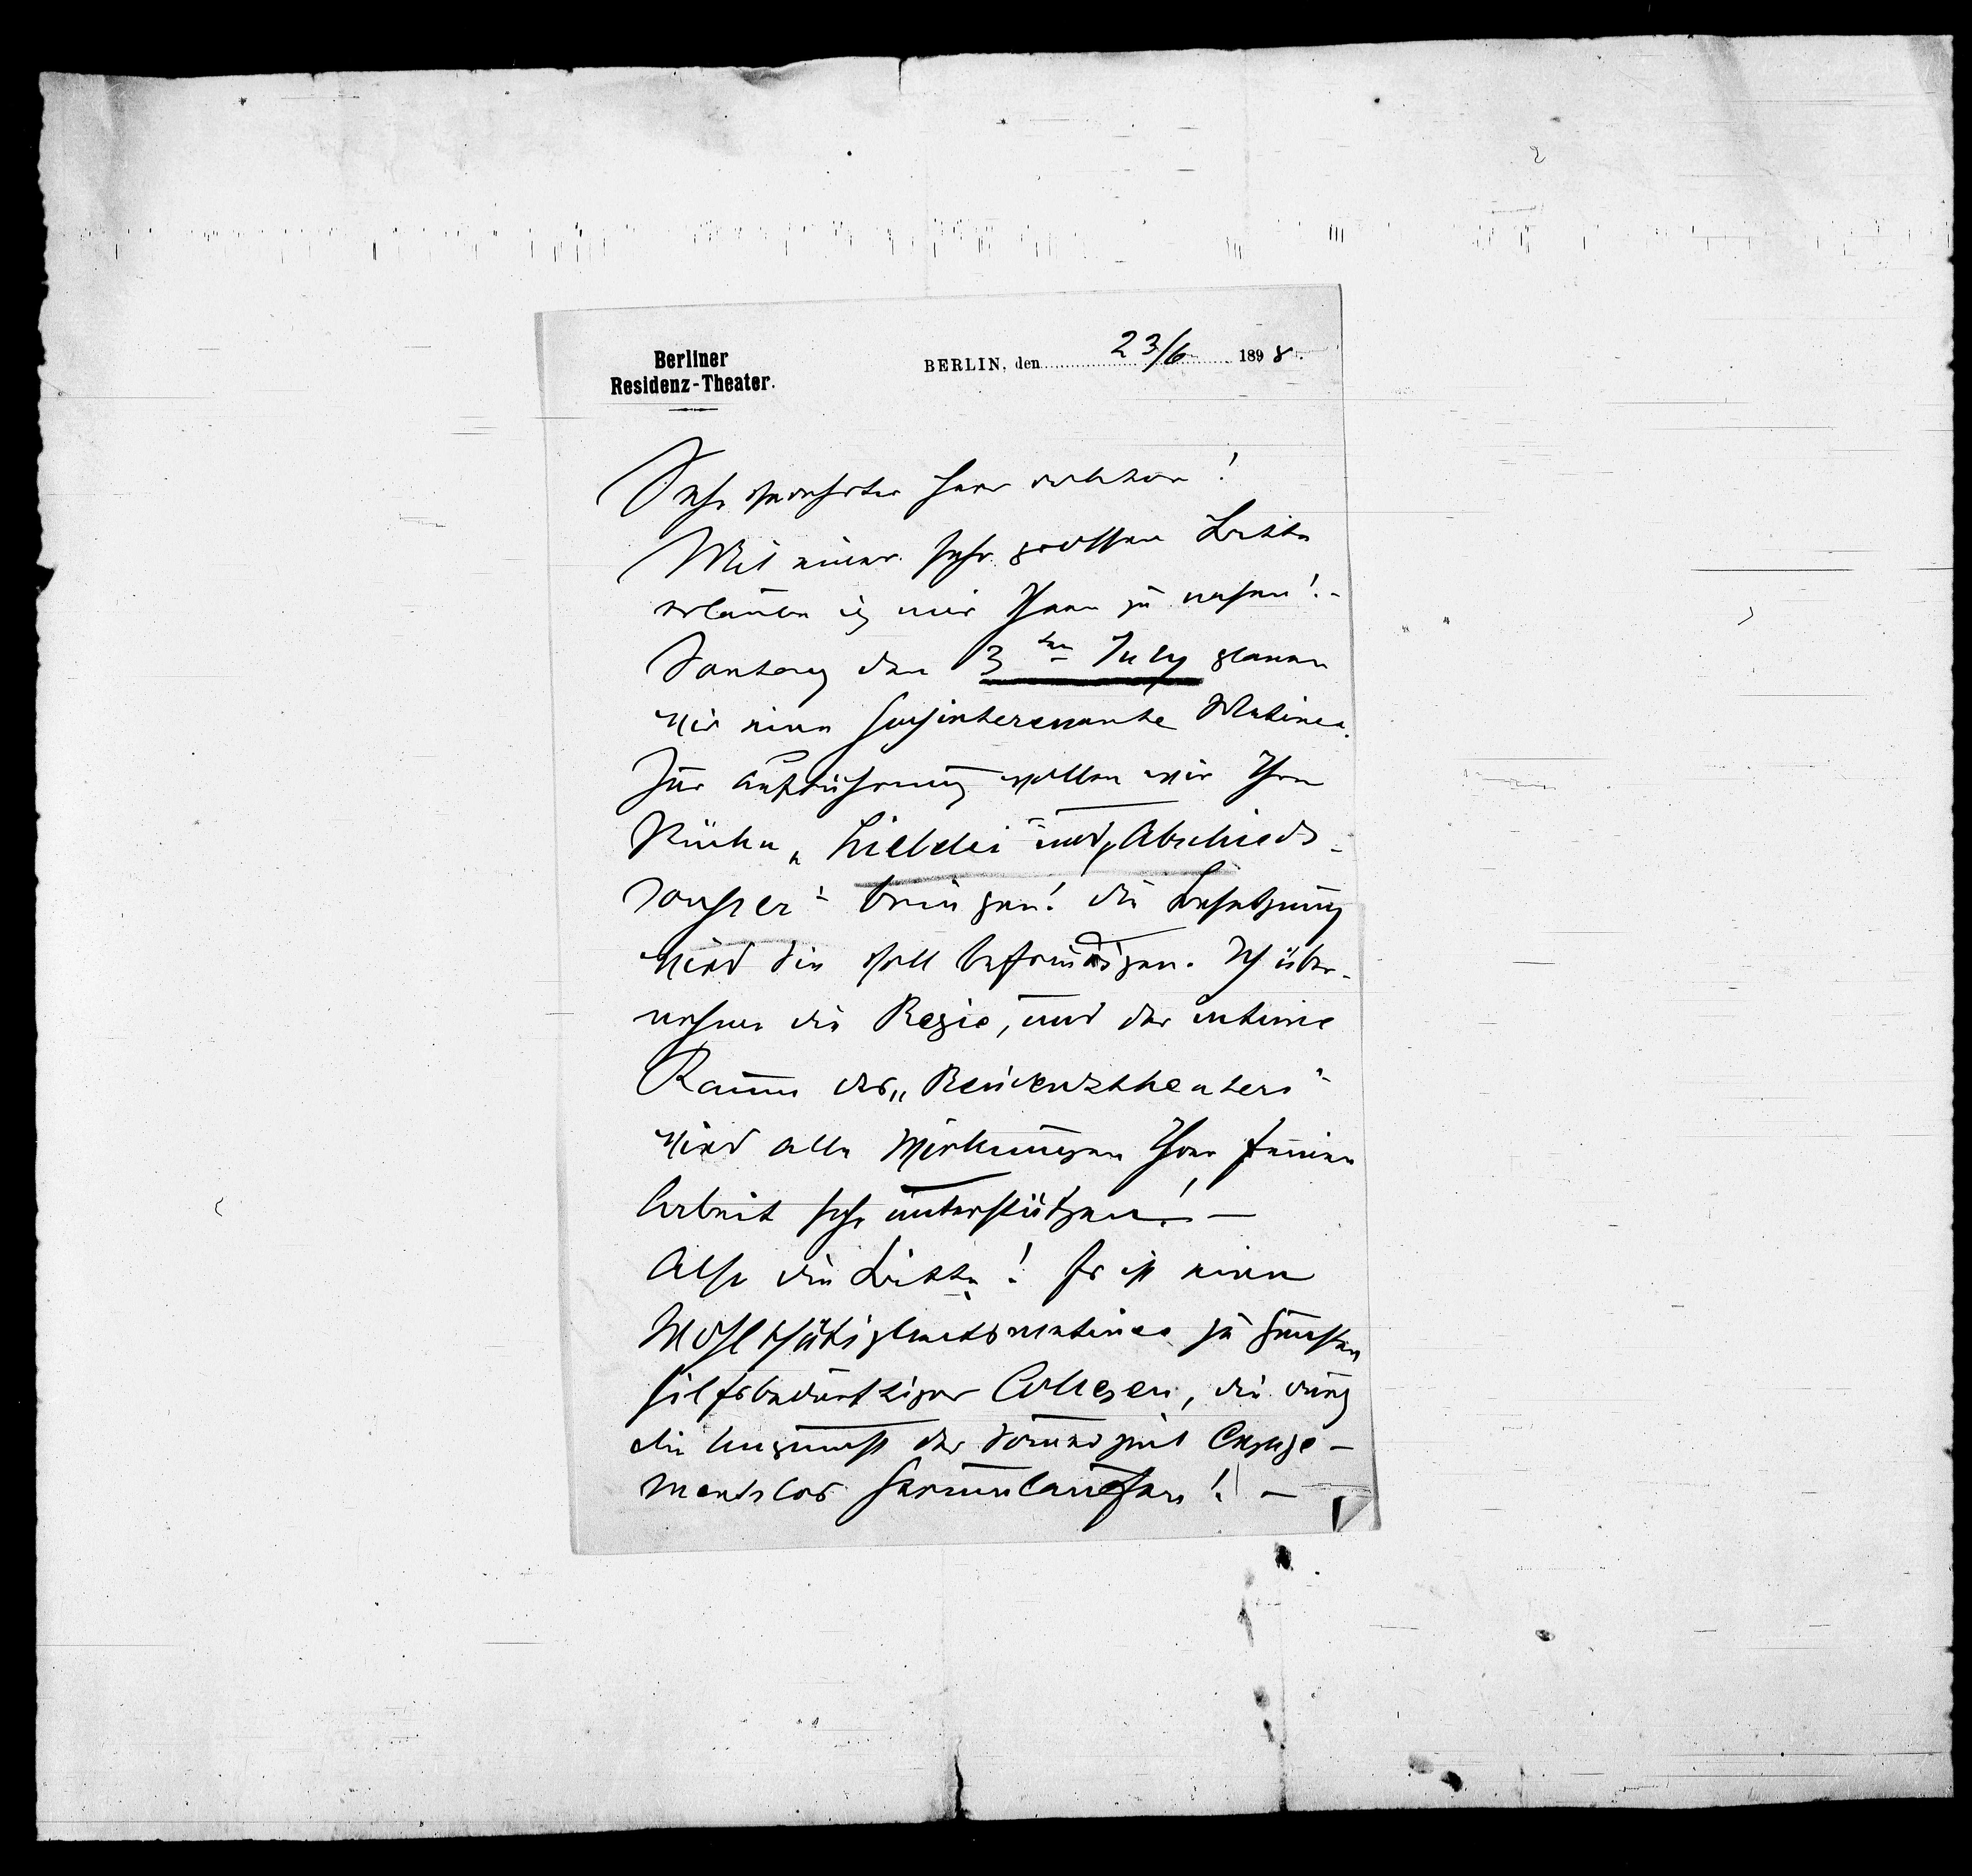 2
Berliner
Residenz-Theater.
BERLIN, den 23/6 1898.
Sehr verehrter Herr Doktor!
Mit einer sehr großen Bitte
erlaube ich mir Ihnen zu nahen! -
Sontag den 3ten July planen
wir eine hochinteressante Matinee.
Zur Aufführung wollen wir Ihre
Stücke „Liebelei" und „Abschieds-
souper" bringen! Die Besetzung
wird Sie voll befriedigen. Ich über-
nehme die Regie, und der intime
Raum des „Residenztheaters"
wird alle Wirkungen Ihrer feinen
Arbeit sehr unterstützen! —
Also die Bitte! Es ist eine
Wohlthätigkeitsmatinee zu Gunsten
hilfsbedürftiger Collegen, die durch
die Ungunst der Sommerzeit Engage-
mentslos herumlaufen! —